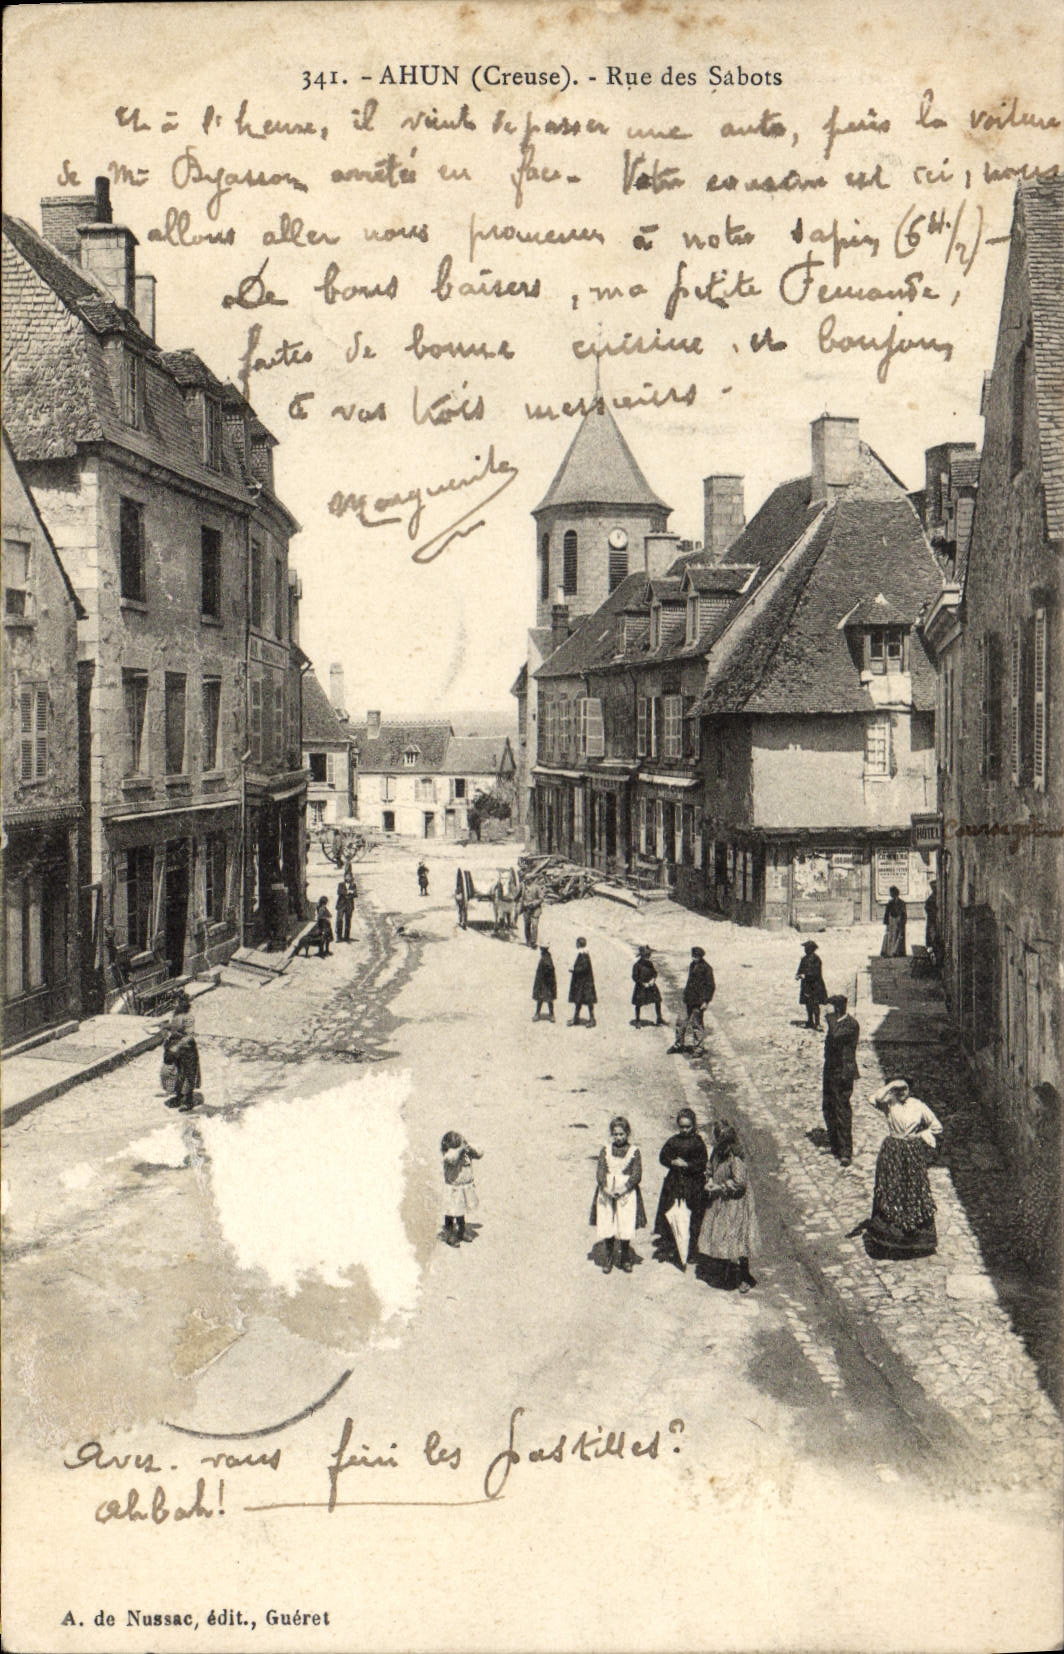 341. - AHUN (Creuse). - Rue des Sabots
Et à l'heure, il vient de passer une auto, puis la voiture
de Mr Byasson arrêtée en face. Votre cousine est ici, nous
allons aller nous promener à notre sapin (6 H. 1/2) -
De bons baisers, ma petite Fernande,
faites de bonne cuisine, et bonjour,
à vos trois messieurs -
Marguerite
HÔTEL
Avez-vous fini les pastilles?
Ahbah!
A. de Nussac, édit., Guéret